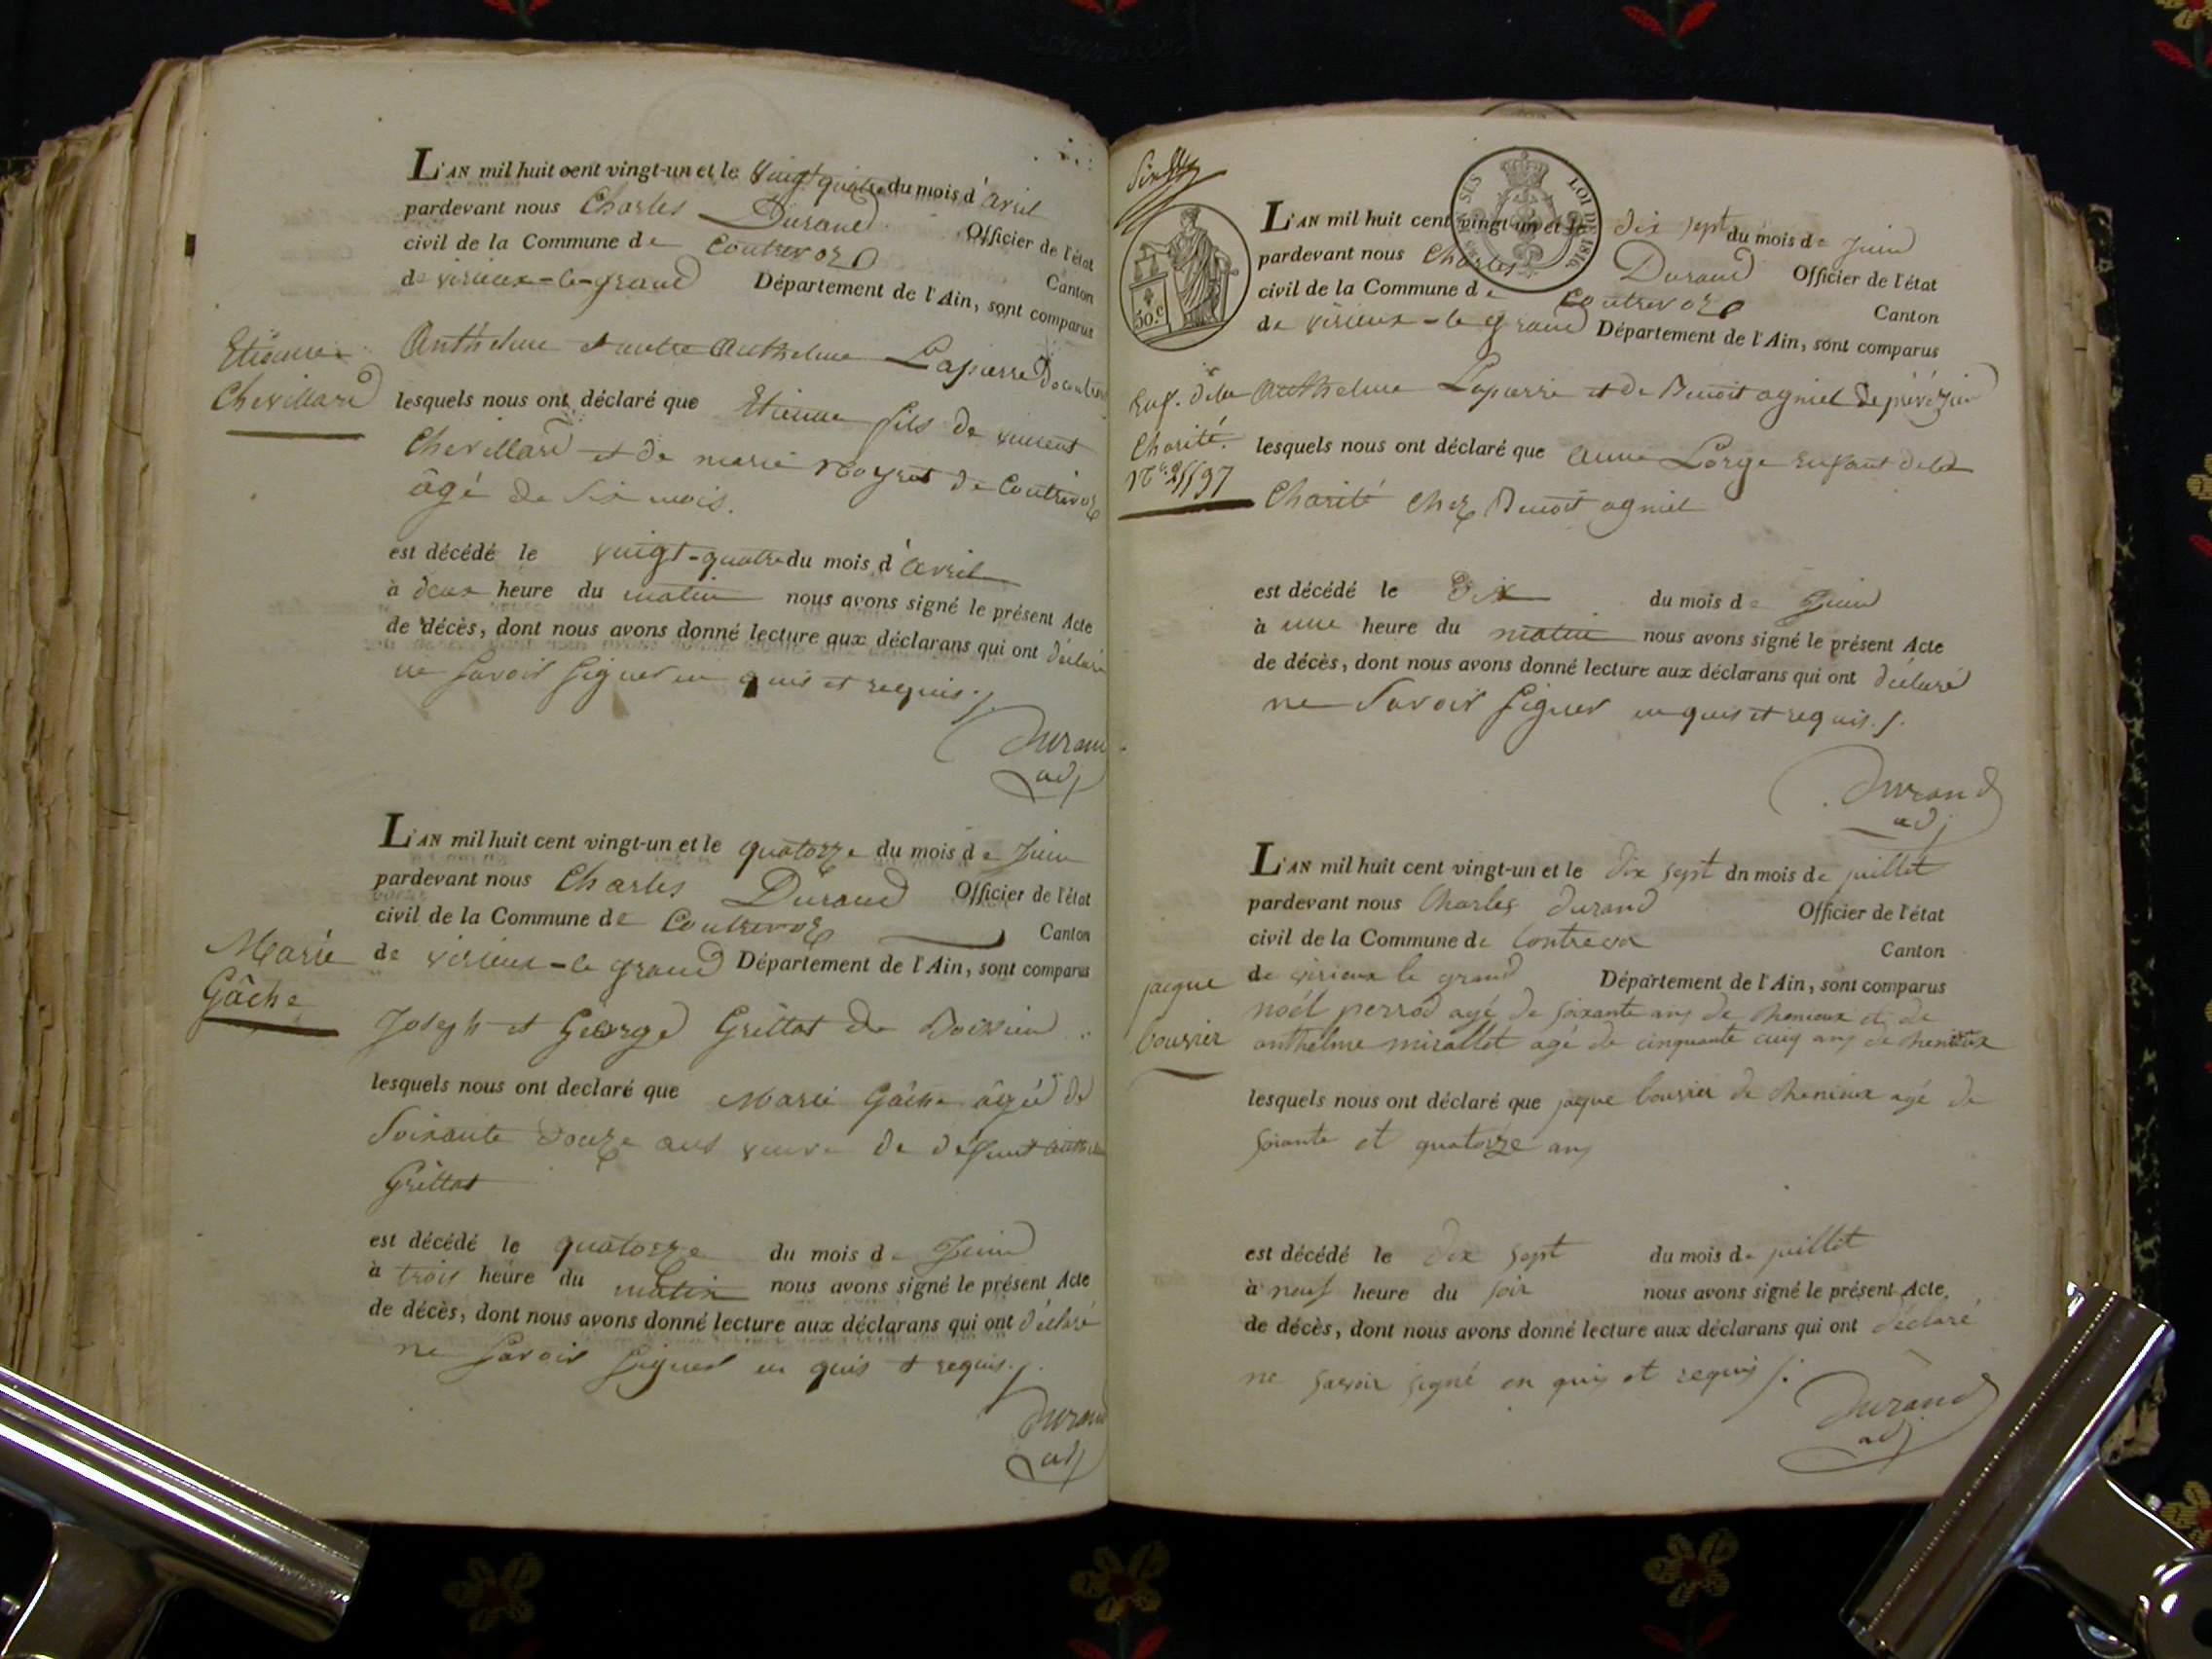 L'AN mil huit cent vingt-un et le vingt quatre du mois d'avril
pardevant nous Charles Durand Officier de l'état
civil de la Commune de Contrevoz Canton
de virieux-le-grand Département de l'Ain, sont comparus
Etienne
Chevillard
Anthelme et autre Anthelme Lapierre
lesquels nous ont déclaré que Etienne fils de vincent
Chevillard et de marie de Contrevoz
âgé de six mois.
est décédé le vingt-quatre du mois d'avril
à deux heure du matin nous avons signé le présent Acte
de décès, dont nous avons donné lecture aux déclarans qui ont déclaré
ne savoir signer en quis et requis./.
Durand
adj
L'AN mil huit cent vingt-un et le quatorze du mois de Juin
pardevant nous Charles Durand Officier de l'état
civil de la Commune de Contrevoz Canton
de virieux-le grand Département de l'Ain, sont comparus
Marie
Gâche
Joseph et George Grillot de
lesquels nous ont declaré que Marie Gâche âgée de
Soixante douze ans veuve de défunt
Grillot
est décédé le quatorze du mois de Juin
à trois heure du matin nous avons signé le présent Acte
de décès, dont nous avons donné lecture aux déclarans qui ont déclaré
ne savoir signer en quis et requis./.
Durand
adj
LOI DE 1816
50.c
L'AN mil huit cent vingt-un et le dix sept du mois de Juin
pardevant nous Charles Durand Officier de l'état
civil de la Commune de Contrevoz Canton
de virieux-le grand Département de l'Ain, sont comparus
Enf. de la
Charité.
Anthelme Lapierre et de Benoit agniel
lesquels nous ont déclaré que anne Lorge enfant de la
Charité chez Benoit agniel
est décédé le dix du mois de Juin
à une heure du matin nous avons signé le présent Acte
de décès, dont nous avons donné lecture aux déclarans qui ont déclaré
ne savoir signer en quis et requis./.
Durand
adj
L'AN mil huit cent vingt-un et le dix sept dn mois de juillet
pardevant nous Charles durand Officier de l'état
civil de la Commune de Contrevoz Canton
de virieux le grand Département de l'Ain, sont comparus
jacque
bouvier
noël perrod agé de soixante ans de et de
anthelme mirallet agé de cinquante cinq ans de
lesquels nous ont déclaré que jacque bouvier de agé de
soixante et quatorze ans
est décédé le dix sept du mois de juillet
à neuf heure du soir nous avons signé le présent Acte
de décès, dont nous avons donné lecture aux déclarans qui ont déclaré
ne savoir signé en quis et requis /.
Durand
adj